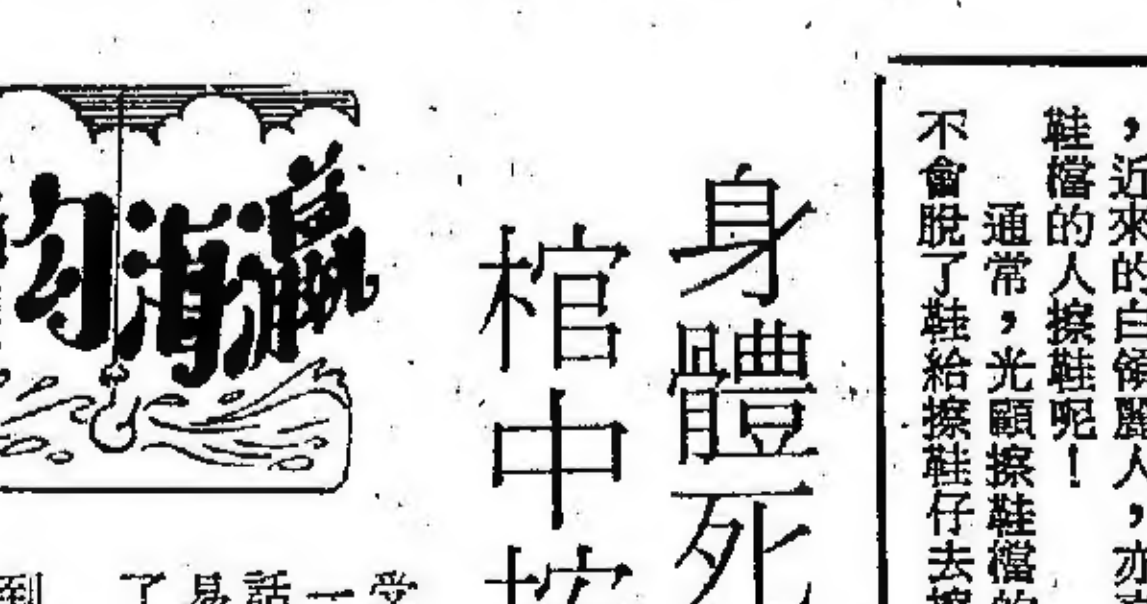 ，近來的白領麗人，亦
鞋檔的人擦鞋呢！
通常，光顧擦鞋檔的
不會脫了鞋給擦鞋仔去擦
身體死
棺中
瀛海勾
受
一
話
易
了
到